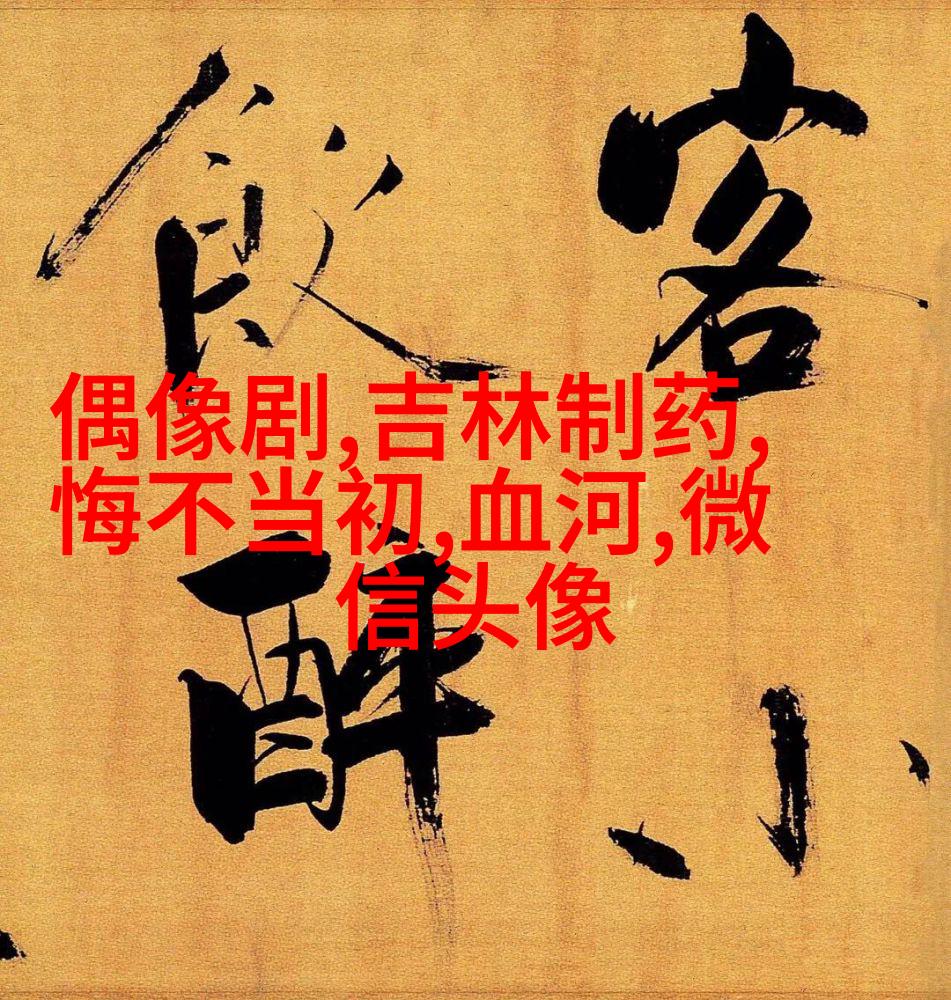 客小
飲醉
偶像剧,吉林制药,
悔不当初,血河,微
信头像